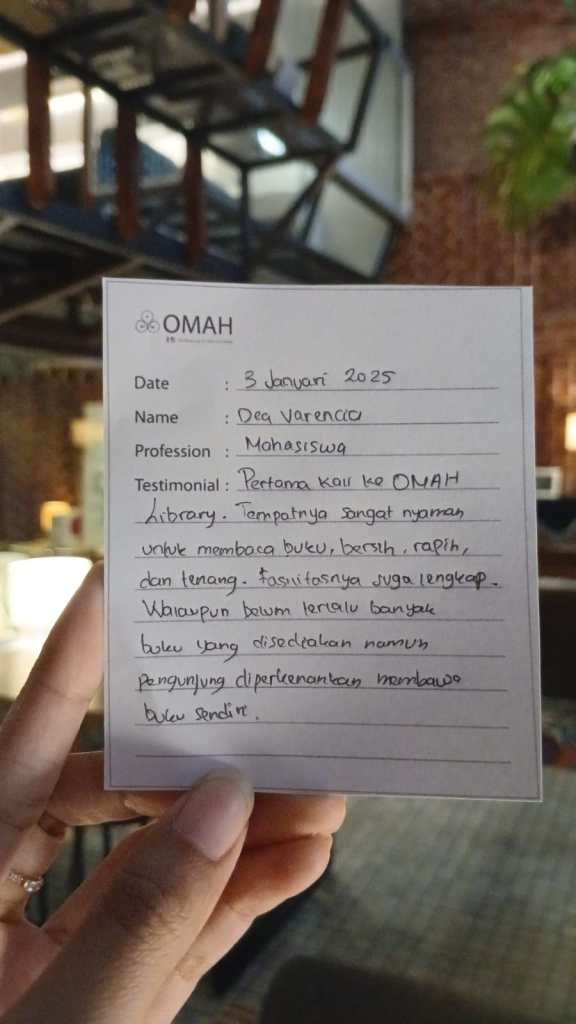 OMAH
Date : 3 Januari 2025
Name : Dea Varencia
Profession : Mahasiswa
Testimonial : Pertama Kali ke OMAH
Library. Tempatnya sangat nyaman
untuk membaca buku, bersih, rapih,
dan tenang. Fasilitasnya juga lengkap.
Walaupun belum terlalu banyak
buku yang disediakan namun
pengunjung diperkenankan membawa
buku sendiri.